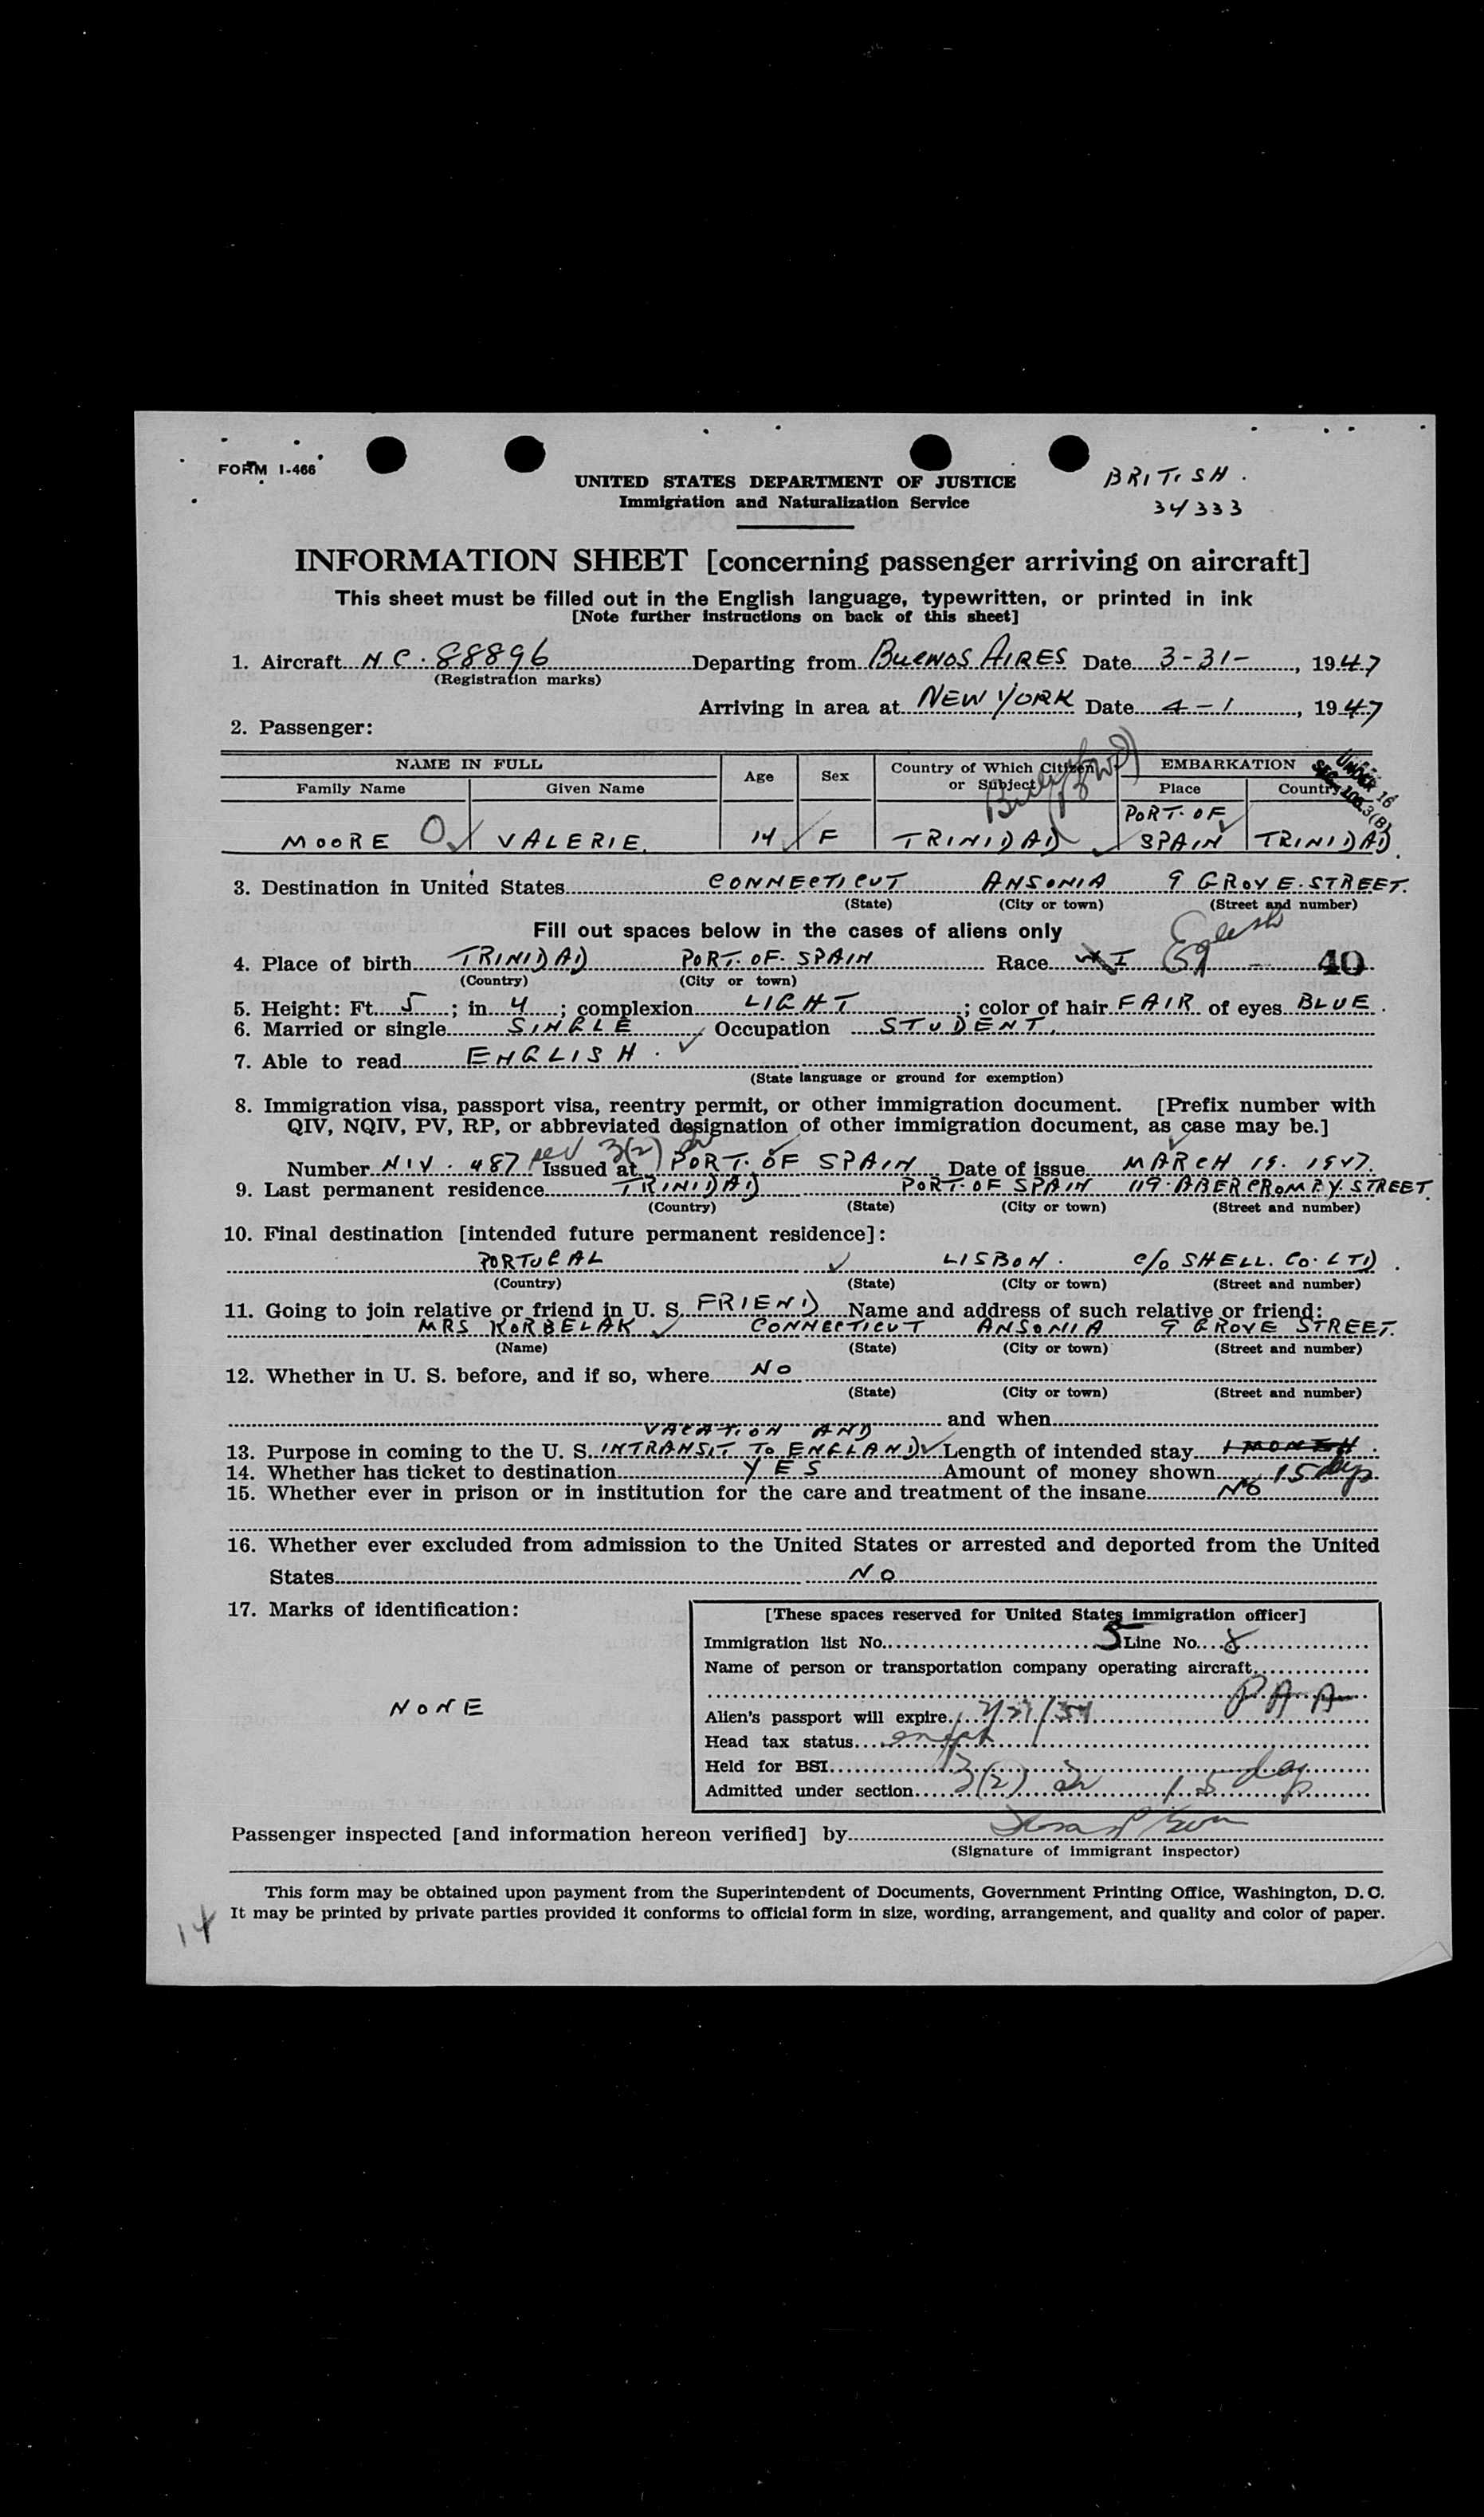 FORM I-466
BRITISH.
34333
UNITED STATES DEPARTMENT OF JUSTICE
Immigration and Naturalization Service
INFORMATION SHEET [concerning passenger arriving on aircraft]
This sheet must be filled out in the English language, typewritten, or printed in ink
[Note further instructions on back of this sheet]
1. Aircraft NC. 88896 Departing from BUENOS AIRES Date 3-31-, 1947
(Registration marks)
Arriving in area at NEW YORK Date 4-1, 1947
2. Passenger:
NAME IN FULL Age Sex Country of Which Citizen or Subject EMBARKATION
Family Name Given Name Place Country
UNDER 16
SEC. 108.3(B)
MOORE VALERIE. 14 F TRINIDAD PORT. OF SPAIN TRINIDAD.
3. Destination in United States CONNECTICUT ANSONIA 9 GROVE. STREET.
(State) (City or town) (Street and number)
Fill out spaces below in the cases of aliens only
4. Place of birth TRINIDAD PORT. OF. SPAIN Race W I English 40
(Country) (City or town)
5. Height: Ft. 5; in. 4; complexion LIGHT; color of hair FAIR of eyes BLUE.
6. Married or single SINGLE Occupation STUDENT.
7. Able to read ENGLISH.
(State language or ground for exemption)
8. Immigration visa, passport visa, reentry permit, or other immigration document. [Prefix number with
QIV, NQIV, PV, RP, or abbreviated designation of other immigration document, as case may be.]
3(2)
Number NIV. 487 Issued at PORT. OF SPAIN Date of issue MARCH 19. 1947.
9. Last permanent residence TRINIDAD PORT. OF SPAIN 119. ABERCROMBY. STREET.
(Country) (State) (City or town) (Street and number)
10. Final destination [intended future permanent residence]:
PORTUGAL LISBON. c/o SHELL. Co. LTD.
(Country) (State) (City or town) (Street and number)
11. Going to join relative or friend in U. S. FRIEND Name and address of such relative or friend:
MRS KORBELAK CONNECTICUT ANSONIA 9 GROVE STREET.
(Name) (State) (City or town) (Street and number)
12. Whether in U. S. before, and if so, where NO
(State) (City or town) (Street and number)
and when
VACATION AND
13. Purpose in coming to the U. S. INTRANSIT TO ENGLAND Length of intended stay 1 MONTH.
14. Whether has ticket to destination YES Amount of money shown 15 days
15. Whether ever in prison or in institution for the care and treatment of the insane NO
16. Whether ever excluded from admission to the United States or arrested and deported from the United
States NO
17. Marks of identification:
NONE
[These spaces reserved for United States immigration officer]
Immigration list No. 5 Line No. 8
Name of person or transportation company operating aircraft
P A A
Alien's passport will expire
Head tax status
Held for BSI
Admitted under section 3(2) 15 days
Passenger inspected [and information hereon verified] by
(Signature of immigrant inspector)
This form may be obtained upon payment from the Superintendent of Documents, Government Printing Office, Washington, D. C.
It may be printed by private parties provided it conforms to official form in size, wording, arrangement, and quality and color of paper.
14